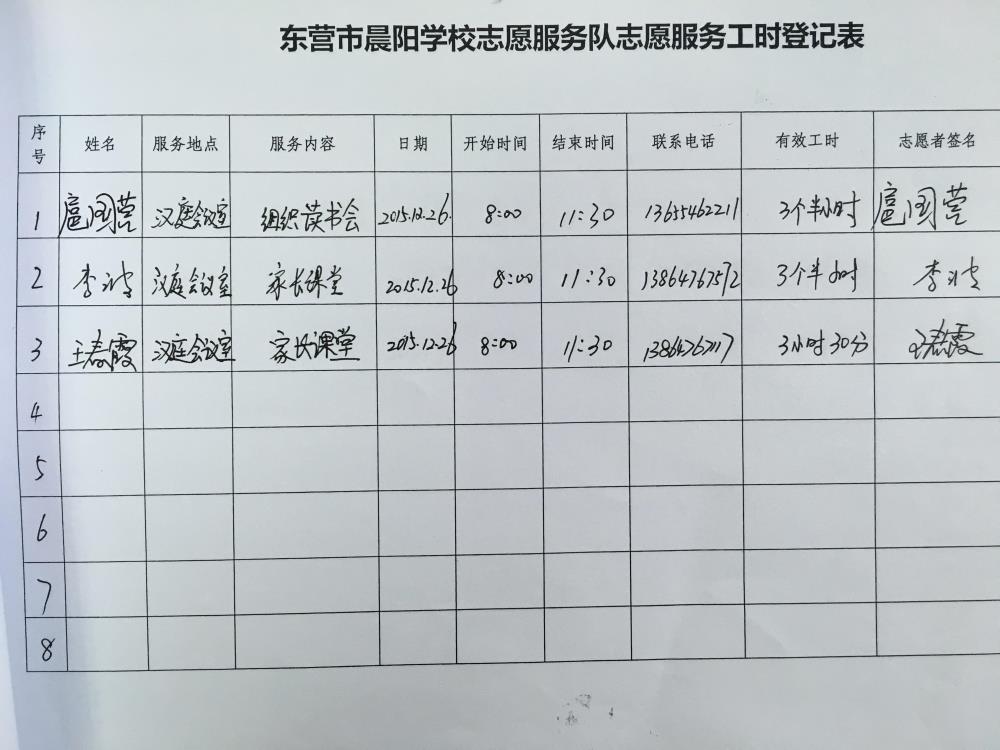 东营市晨阳学校志愿服务队志愿服务工时登记表
序号 姓名 服务地点 服务内容 日期 开始时间 结束时间 联系电话 有效工时 志愿者签名
1 扈国营 汉庭会议室 组织读书会 2015.12.26. 8:00 11:30 13655462211 3个半小时 扈国营
2 李波 汉庭会议室 家长课堂 2015.12.26 8:00 11:30 13864767572 3个半小时 李波
3 王春霞 汉庭会议室 家长课堂 2015.12.26 8:00 11:30 3小时30分 王春霞
4
5
6
7
8